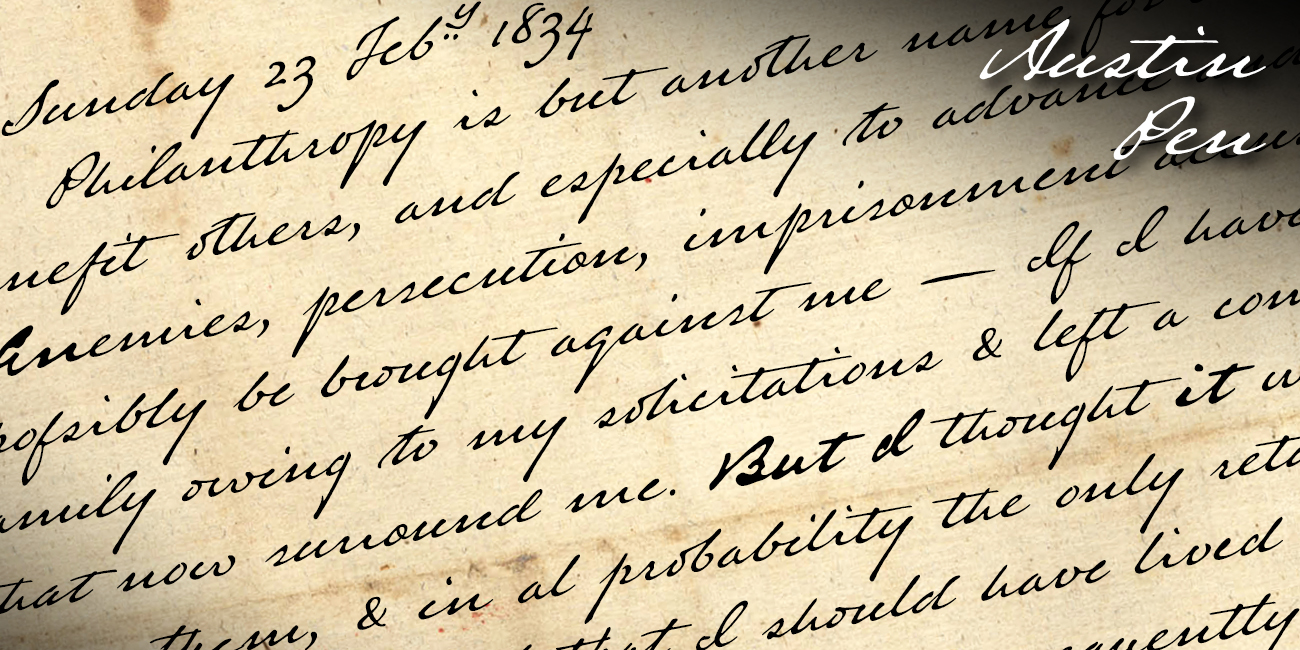 Sunday 23 Feby 1834
Philanthropy is but another name for
nefit others, and especially to advance
Enemies, persecution, imprisonment accus
pofsibly be brought against me — If I have
amily owing to my solicitations & left a com
that now surround me. But I thought it w
them, & in al probability the only reta
that I should have lived
quently
Austin
Pen